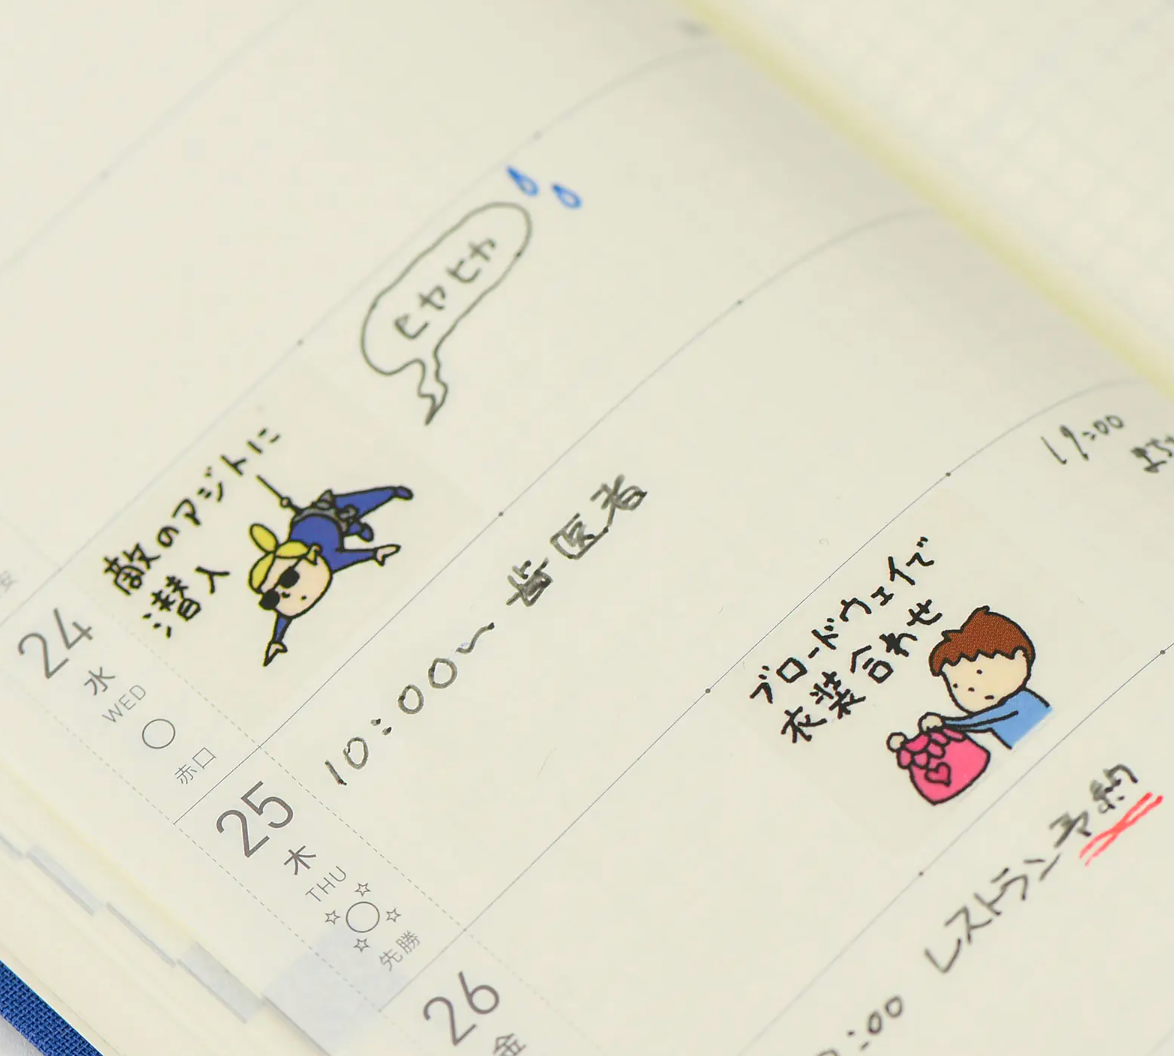 ヒヤヒヤ
敵のアジトに
潜入
24
水
WED
赤口
10:00〜 歯医者
25
木
THU
先勝
19:00
ブロードウェイで
衣装合わせ
26
金
レストラン予約
:00